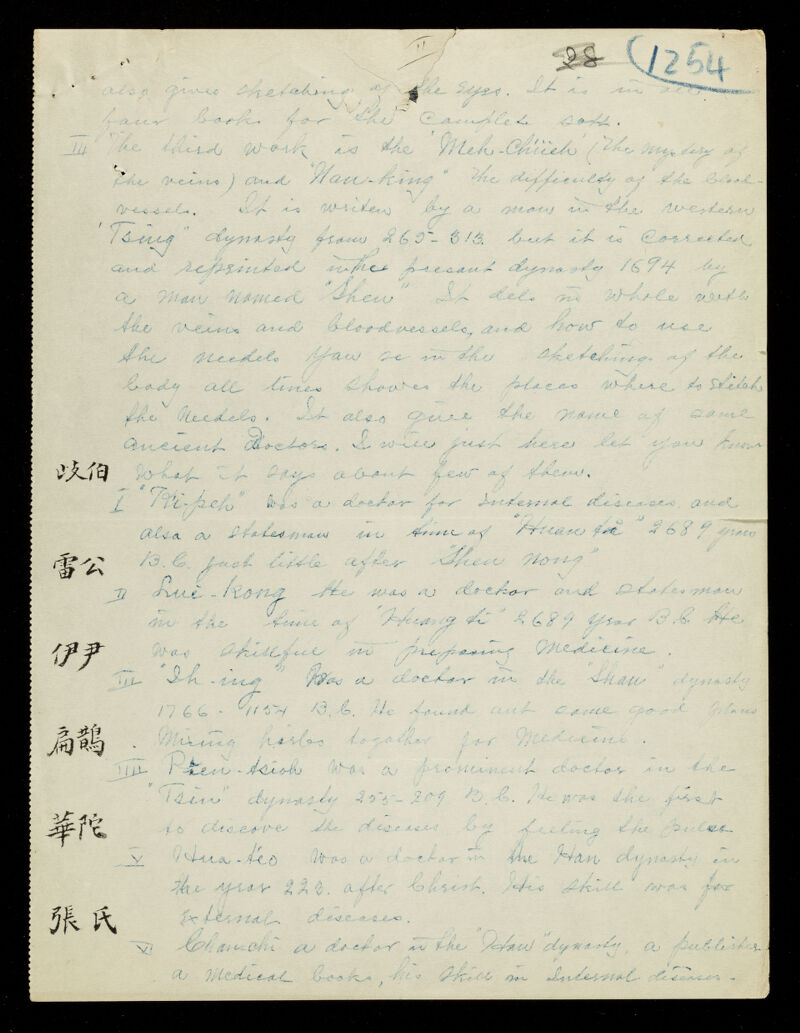 II
28
1254
also gives sketching of the eyes. It is in all
four books for the complet sort.
III The third work is the "Meh-Chüeh" (The mystery of
the veins) and "Nan-king" the difficulty of the blood-
vessels. It is writen by a man in the western
"Tsing" dynasty from 265-313 but it is corrected
and reprinted in the present dynasty 1694 by
a man named "Shen" It dels in whole with
the veins and bloodvessels, and how to use
the needels in the sketching of the
body all times showes the places where to stitch
the needels. It also give the name of some
ancient Doctors. I will just here let you know
what it says about few of them.
岐伯
I "Ki-peh" was a doctor for internal diseases and
also a statesman in time of "Huan ti" 2689 year
B.C. just little after "Shen nong"
雷公
II Lui-kong He was a doctor and statesman
in the time of "Huang ti" 2689 year B.C. He
was skillful in preparing medicine.
伊尹
III "Ih-ing" Was a doctor in the "Shan" dynasty
1766-1154 B.C. He found out some good plans
Mixing herbs together for Medicine.
扁鵲
IIII Pien-tsioh was a prominent doctor in the
"Tsin" dynasty 255-209 B.C. He was the first
to discove the diseases by feeling the pulse
華陀
V Hua-to was a doctor in the Han dynasty in
the year 223. after Christ. His skill was for
External diseases.
張氏
VI Chanchi a doctor in the "Han" dynasty, a publisher
a medical books, his skill in Internal diseases.